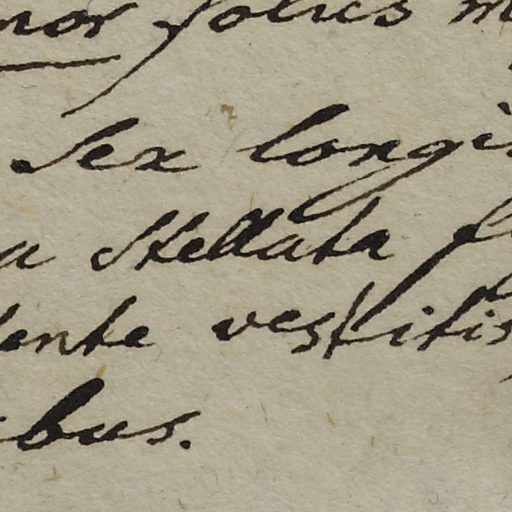 nor foliis m
Sex longi
a Stellata fl
dente vestitis
ibus.